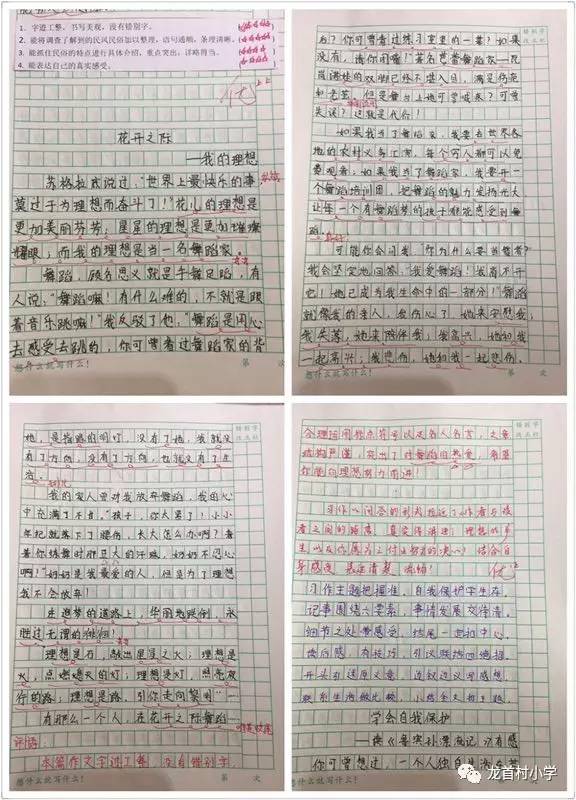 1、字迹工整、书写美观,没有错别字。
2、能将调查了解到的民风民俗加以整理,语句通顺,条理清晰。
3、能抓住民俗的特点进行具体介绍,重点突出,详略得当。
4、能表达自己的真实感受。
优
花开之际
——我的理想
苏格拉底说过,“世界上最快乐的事,
莫过于为理想而奋斗了!”花儿的理想是
更加美丽芬芳;星星的理想是更加璀璨
耀眼;而我的理想是当一名舞蹈家。
舞蹈,顾名思义就是手舞足蹈,有
人说,“舞蹈嘛!有什么难的,不就是跟
着音乐跳嘛!”我反驳了他,“舞蹈是用心
去感受去跳的,你可曾看过舞蹈家的背
想什么就写什么!
第 次
错别字
改正栏
后?你可曾看过练习室里的一幕?如果
没有,请你闭嘴!著名芭蕾舞蹈家
的双脚已经不堪入目,满是伤疤
和老茧。但是舞台上她可曾喊疼?可曾
失误?这就是代价!
如果我当了舞蹈家,我要去世界各
地的农村义务汇演,每个穷人都可以免
费观看;如果我当了舞蹈家,我要开一
个舞蹈培训团,把舞蹈的魅力发扬光大
让每一个有舞蹈梦的孩子都能感受到舞
蹈。
可能你会问我,“你为什么要当舞蹈家?”
我会坚定地回答:“我爱舞蹈!我离不开
它!她已成为我生命中的一部分!”舞蹈
就像我的亲人,我伤心了,她来安慰我,
我失落,她来陪伴我;我高兴,她和我
一起高兴;我悲伤,她和我一起悲伤。
想什么就写什么!
第 次
她,是指路的明灯,没有了她,我就没
有了方向,没有了方向,也就没有了生
活。
我的家人曾对我放弃舞蹈,我的心
中充满了不甘。“孩子,你太累了!小小
年纪就落下了腰伤,长大怎么办啊?看
着你练舞时那豆大的汗珠,妈妈不忍心
啊!”妈妈是我最爱的人,但是为了理想
我不会放弃!
在追梦的道路上,华丽地跌倒,永
胜过无谓的徘徊!
理想是石,敲出星星之火;理想是
火,点燃熄灭的灯;理想是灯,照亮夜
行的路;理想是路,引你走向黎明……
有那么一个人,在花开之际舞蹈……
评语:
本篇作文字迹工整,没有错别字。
想什么就写什么!
第 次
错别字
改正栏
合理运用标点符号以及名人名言,文章
结构严谨,突出了对舞蹈的热爱,希望
你能向理想努力前进!
习作以问答的形式拉近了作者与读
者之间的距离,真实得讲述了理想的产
生以及你展示之付出努力的决心!结合自
身感受,表达清楚,流畅!
优
习作主题把握准,自我保护字生存。
记事围绕六要素,事情发展交待清。
细节之处带感受,结尾一扣中心。
读后感,有技巧,引议联结四施招。
开头引述原文意,
联系生活做比较,
学会自我保护
——读《鲁滨孙漂流记》有感
你可曾想过,一个人独自生活在荒
想什么就写什么!
龙首村小学